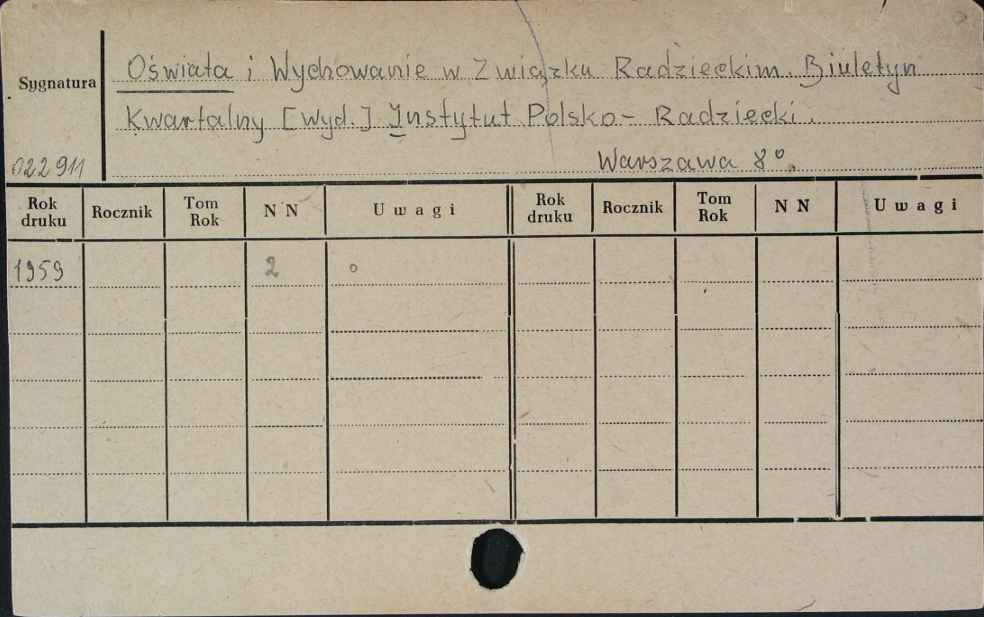 Sygnatura
Oświata i Wychowanie w Związku Radzieckim. Biuletyn
Kwartalny [Wyd.] Instytut Polsko-Radziecki.
022911 Warszawa 8°.
Rok druku Rocznik Tom Rok NN Uwagi Rok druku Rocznik Tom Rok NN Uwagi
1959 2 o